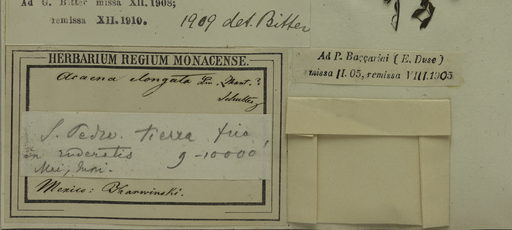 Ad G. Bitter missa XII. 1908;
remissa XII. 1910.
1909 det. Bitter
Ad P. Baccarini (E. Duse)
remissa II. 05, remissa VIII. 1905
HERBARIUM REGIUM MONACENSE.
Acaena elongata L. Mant. ?
Schultes
S. Pedro. tierra fria
in ruderatis 9-10000'
Mai, Juni.
Mexico: Karwinski.